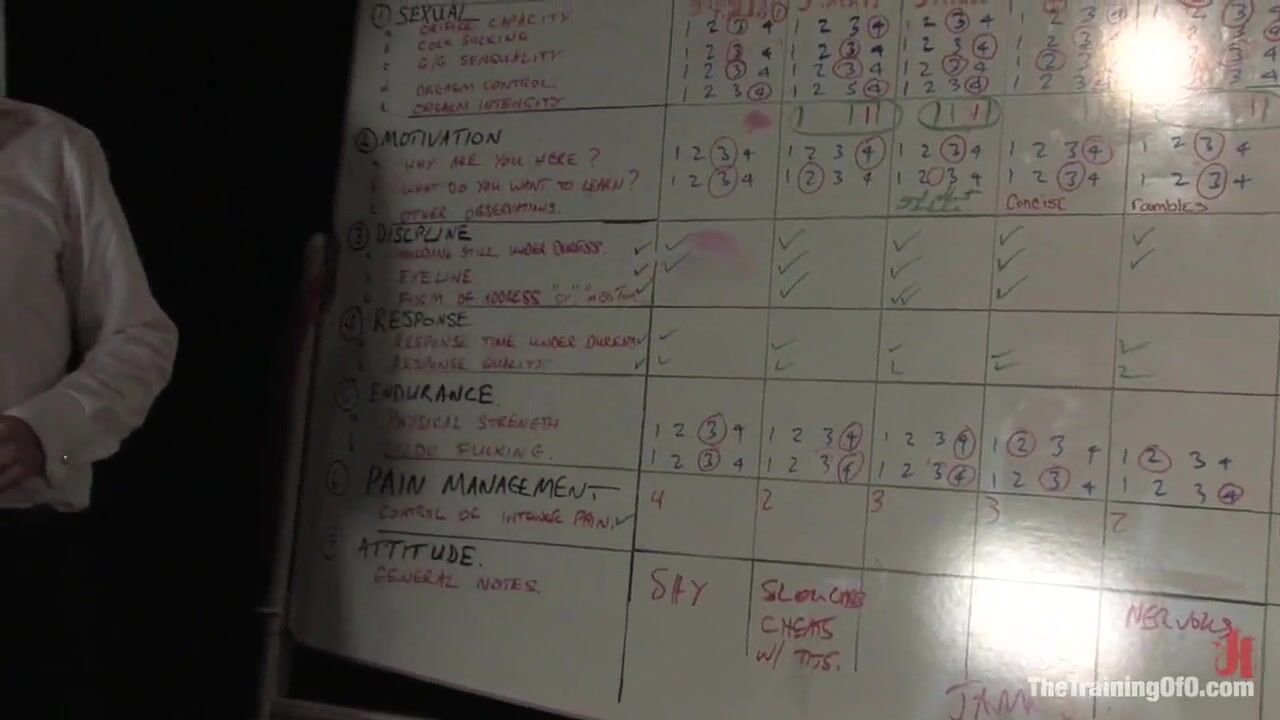 ① SEXUAL
a ORIFICE CAPACITY 1 2 3 4 1 2 3 4 1 2 3 4 1 2 3 4
b COCK SUCKING 1 2 3 4 1 2 3 4 1 2 3 4 1 2 3 4
c G/G SENSUALITY 1 2 3 4 1 2 3 4 1 2 3 4 1 2 3 4
d ORGASM CONTROL 1 2 3 4 1 2 5 4 1 2 3 4 1 2 3 4
ORGASM INTENSITY
② MOTIVATION
WHY ARE YOU HERE? 1 2 3 4 1 2 3 4 1 2 3 4 1 2 3 4 1 2 3 4
WHAT DO YOU WANT TO LEARN? 1 2 3 4 1 2 3 4 1 2 3 4 1 2 3 4 1 2 3 4
OTHER OBSERVATIONS. Concise rambles
③ DISCIPLINE
HOLDING STILL UNDER DURESS. ✓ ✓ ✓ ✓ ✓ ✓
EYELINE ✓ ✓ ✓ ✓ ✓ ✓
FORM OF ADDRESS "SIR", ✓ ✓ ✓✓ ✓
④ RESPONSE
RESPONSE TIME UNDER DURESS ✓ ✓
RESPONSE QUALITY ✓
⑤ ENDURANCE.
PHYSICAL STRENGTH 1 2 3 4 1 2 3 4 1 2 3 4 1 2 3 4 1 2 3 4
FUCKING. 1 2 3 4 1 2 3 4 1 2 3 4 1 2 3 4 1 2 3 4
PAIN MANAGEMENT
CONTROL OF INTENSE PAIN. ✓ 4 2 3 3 2
ATTITUDE.
GENERAL NOTES.
SHY
SLOUCHES
CHEATS
W/ TITS.
NERVOUS
TheTrainingOfO.com